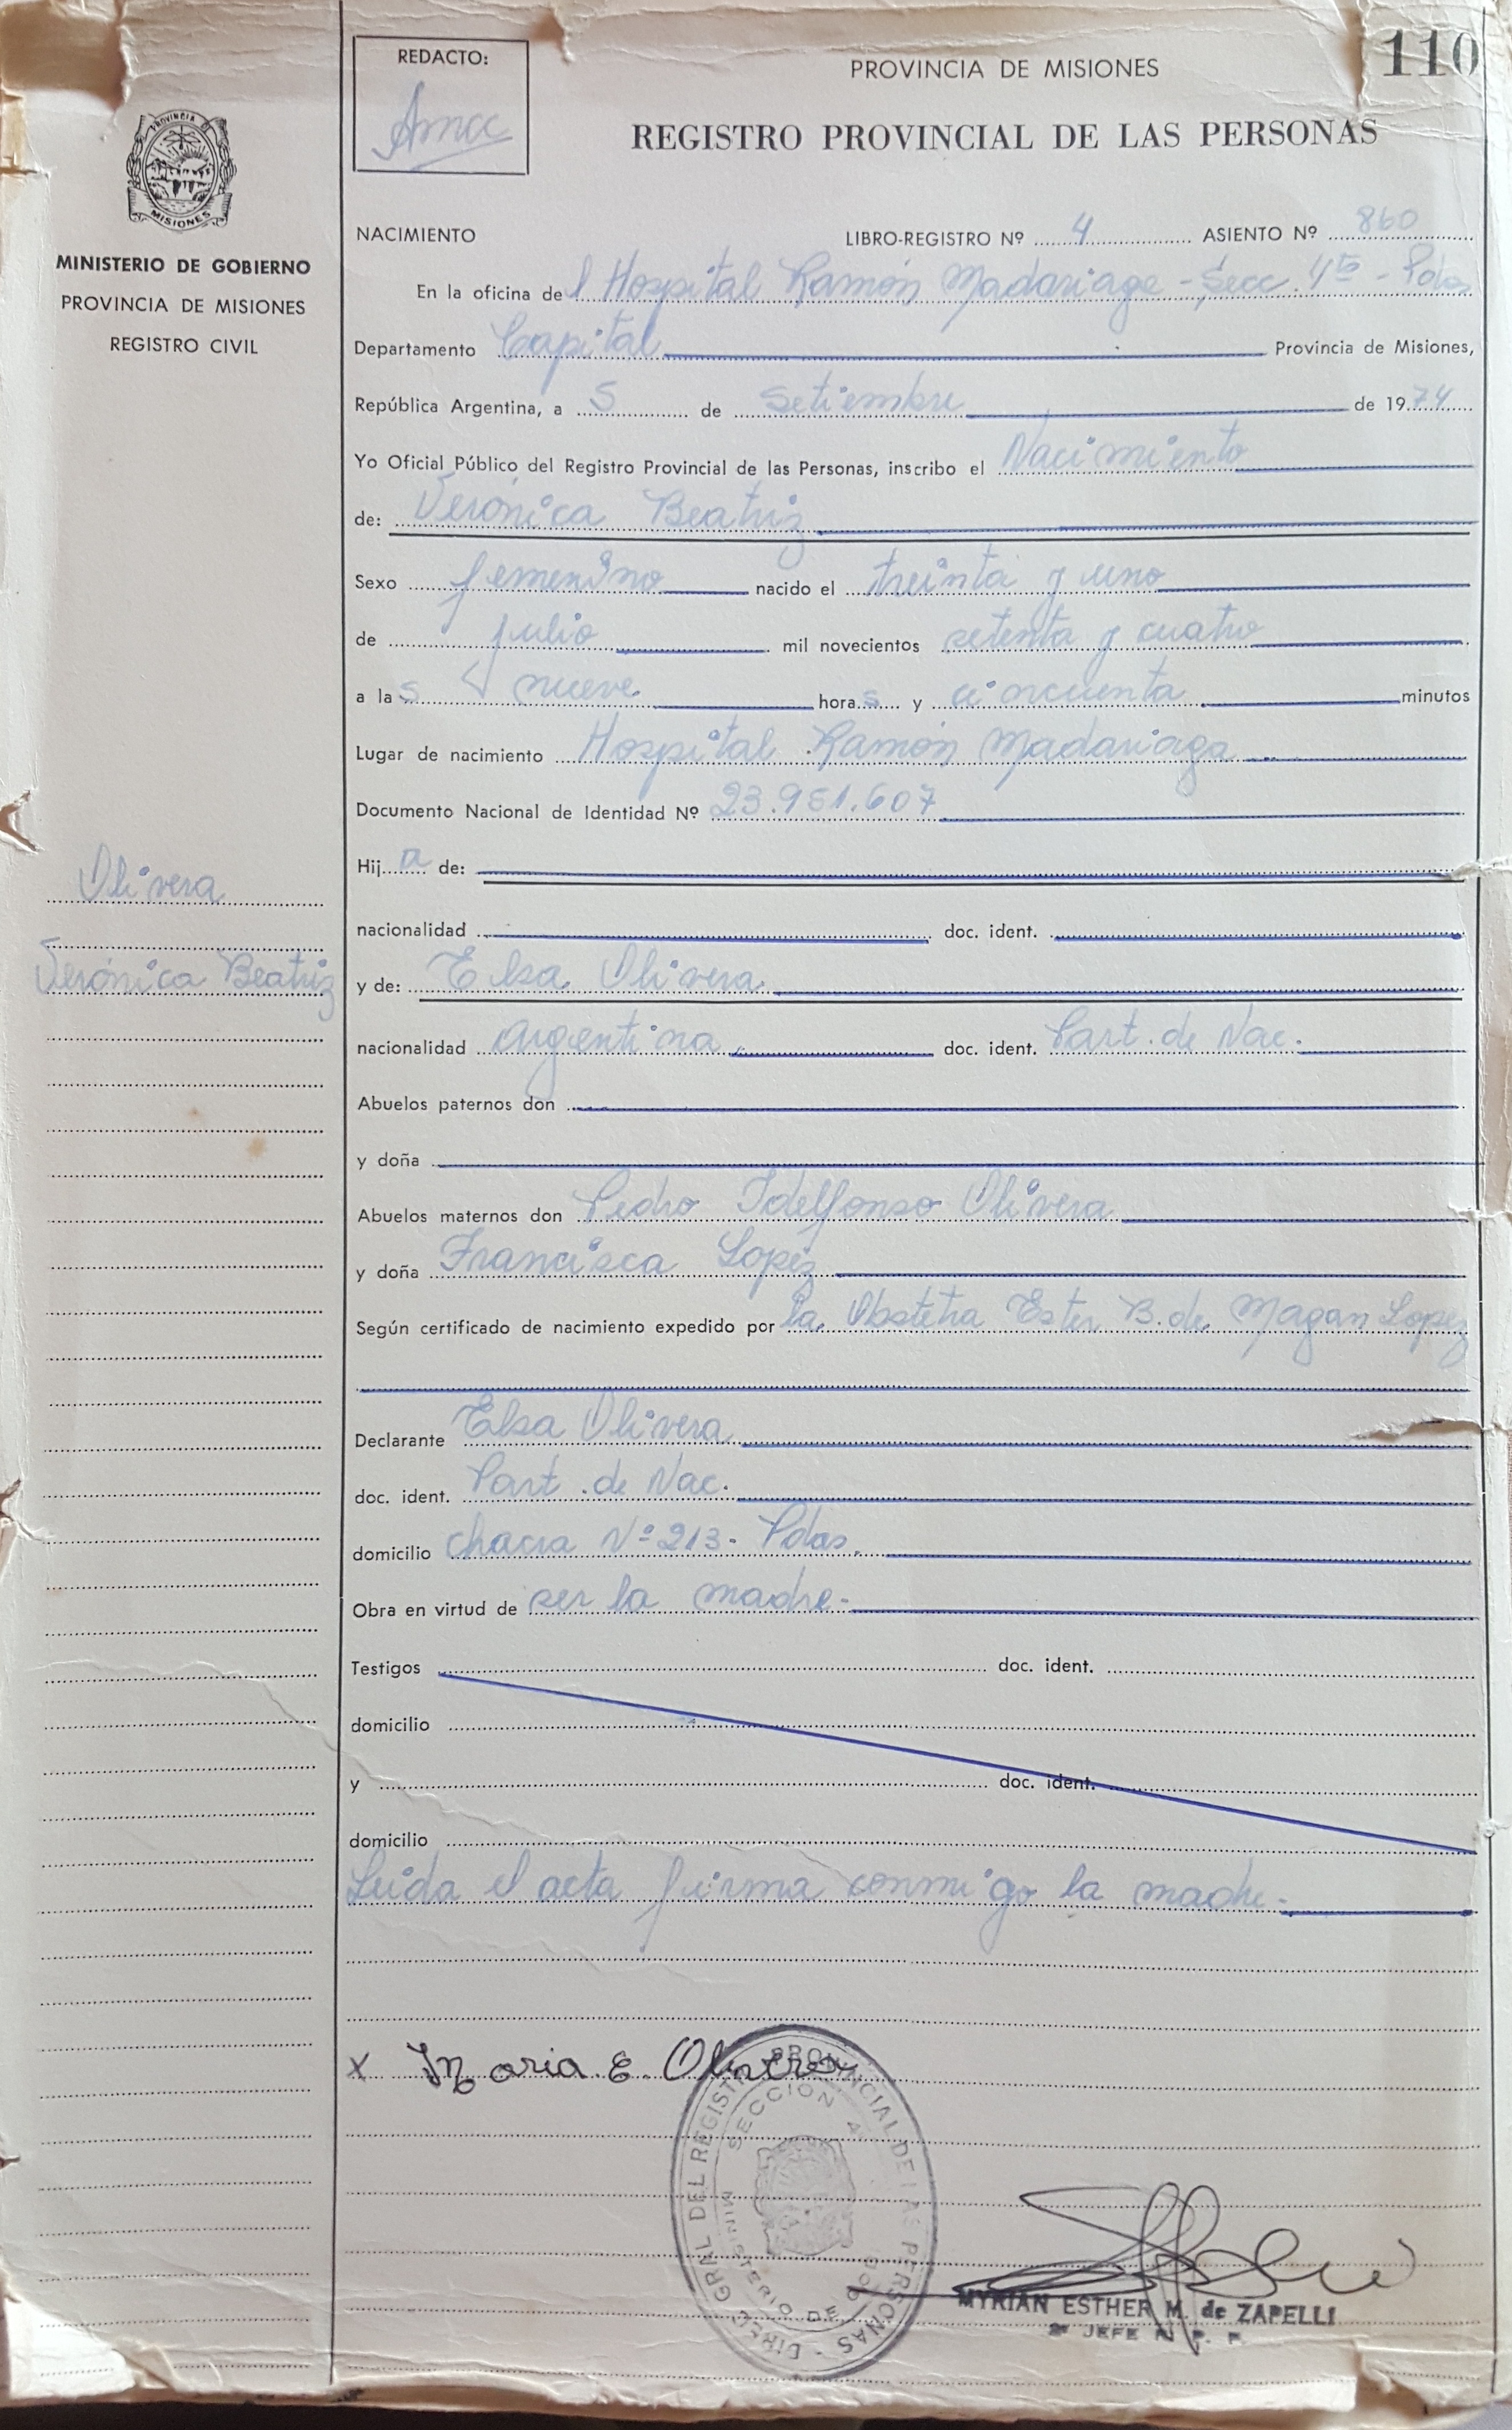 110
REDACTO:
PROVINCIA DE MISIONES
REGISTRO PROVINCIAL DE LAS PERSONAS
PROVINCIA D
MISIONES
MINISTERIO DE GOBIERNO
PROVINCIA DE MISIONES
REGISTRO CIVIL
NACIMIENTO LIBRO-REGISTRO Nº 4 ASIENTO Nº 860
En la oficina del Hospital Ramón Madariaga - Secc. 4ta - Pdas
Departamento Capital Provincia de Misiones,
República Argentina, a 5 de Setiembre de 1974
Yo Oficial Público del Registro Provincial de las Personas, inscribo el Nacimiento
de: Verónica Beatriz
Sexo femenino nacido el treinta y uno
de julio mil novecientos setenta y cuatro
a las nueve horas y cincuenta minutos
Lugar de nacimiento Hospital Ramón Madariaga
Documento Nacional de Identidad Nº 23.951.607
Hija de:
nacionalidad doc. ident.
Olivera
Verónica Beatriz
y de: Elsa Olivera
nacionalidad argentina doc. ident. Part. de Nac.
Abuelos paternos don
y doña
Abuelos maternos don Pedro Idelfonso Olivera
y doña Francisca Lopez
Según certificado de nacimiento expedido por la Obstetra Ester B. de Magan Lopez
Declarante Elsa Olivera
doc. ident. Part. de Nac.
domicilio chacra Nº 213 - Pdas.
Obra en virtud de ser la madre-
Testigos doc. ident.
domicilio
y doc. ident.
domicilio
Leida el acta firma conmigo la madre-
x Maria E. Olivera
DIREC. GRAL DEL REGISTRO PROVINCIAL DE LAS PERSONAS
SECCION 4
MINISTERIO DE GOB
MYRIAN ESTHER M. de ZAPELLI
JEFE R. P. P.